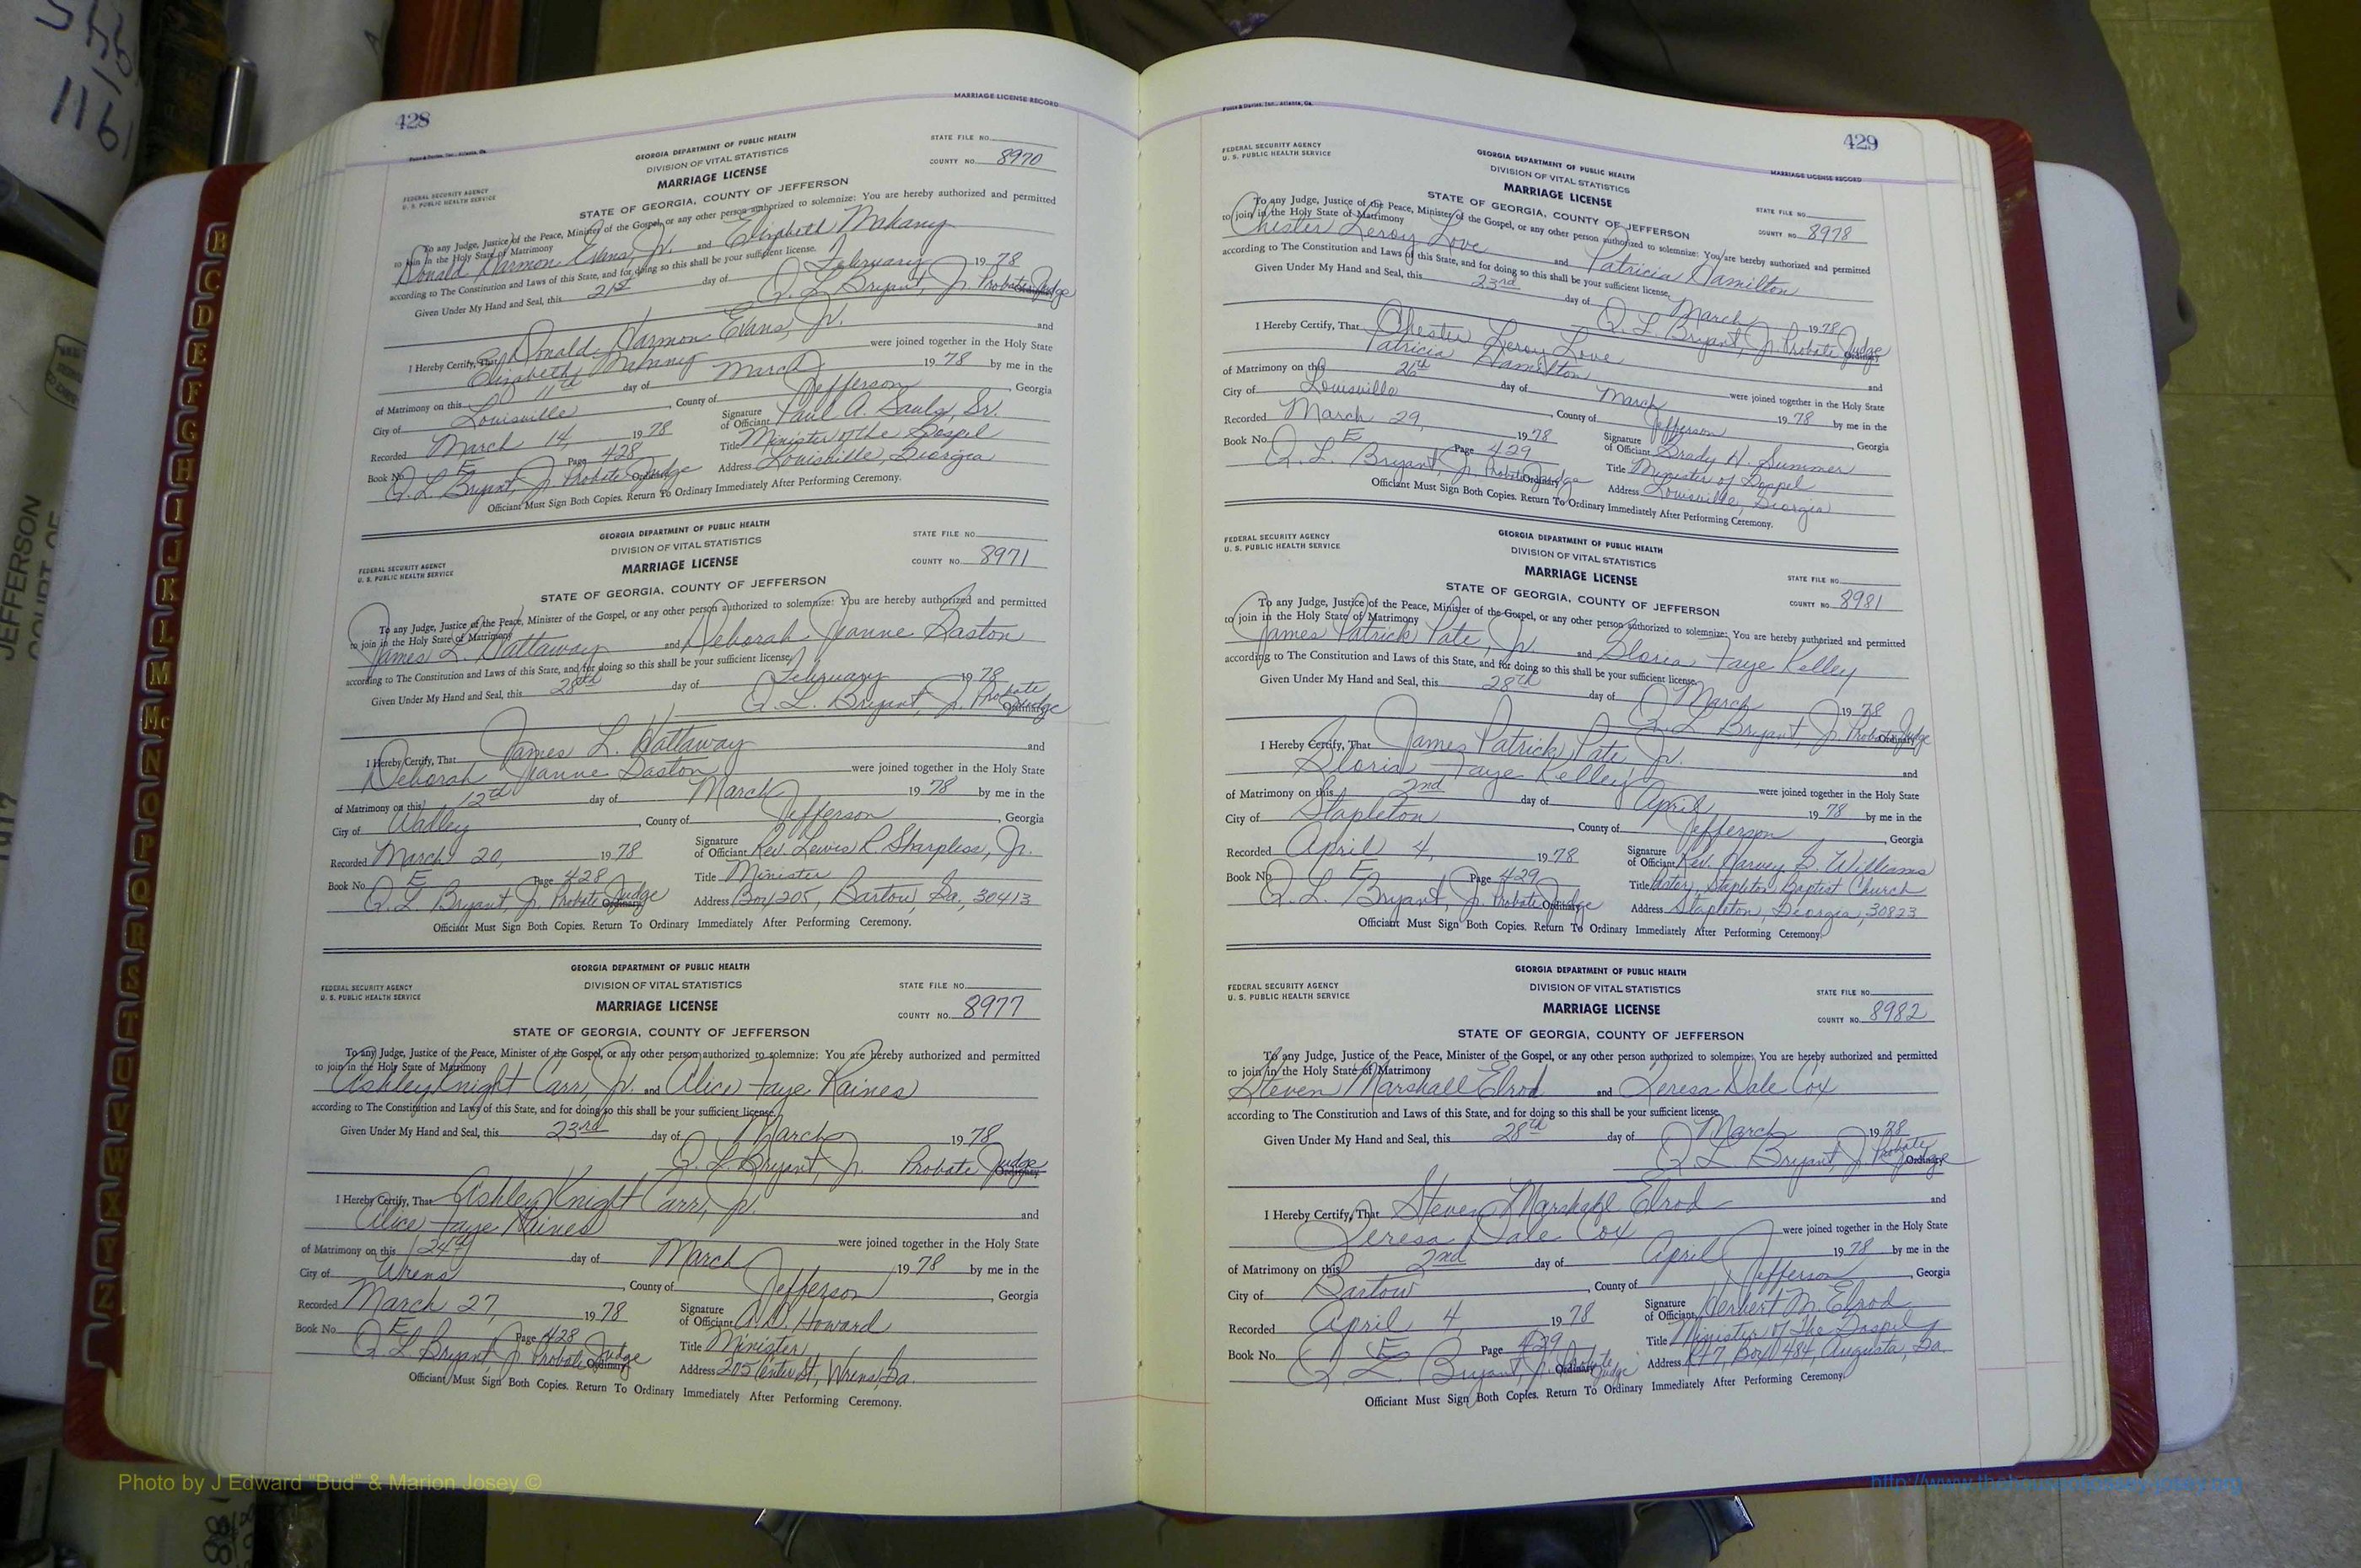 428
MARRIAGE LICENSE RECORD
GEORGIA DEPARTMENT OF PUBLIC HEALTH
STATE FILE NO.
DIVISION OF VITAL STATISTICS
COUNTY NO. 8970
MARRIAGE LICENSE
FEDERAL SECURITY AGENCY
U. S. PUBLIC HEALTH SERVICE
STATE OF GEORGIA, COUNTY OF JEFFERSON
To any Judge, Justice of the Peace, Minister of the Gospel, or any other person authorized to solemnize: You are hereby authorized and permitted
to join in the Holy State of Matrimony
Donald Harmon Evans, Jr. and Elizabeth Mahaney
according to The Constitution and Laws of this State, and for doing so this shall be your sufficient license.
Given Under My Hand and Seal, this 21st day of February 1978
Q. L. Bryant, Jr. Probate Judge Ordinary
I Hereby Certify, That Donald Harmon Evans, Jr. and
Elizabeth Mahaney were joined together in the Holy State
of Matrimony on this 11th day of March 1978 by me in the
City of Louisville, County of Jefferson, Georgia
Recorded March 14, 1978
Signature of Officiant Paul A. Sauls, Sr.
Book No. E Page 428
Title Minister of the Gospel
Q. L. Bryant, Jr. Probate Judge Ordinary
Address Louisville, Georgia
Officiant Must Sign Both Copies. Return To Ordinary Immediately After Performing Ceremony.
GEORGIA DEPARTMENT OF PUBLIC HEALTH
STATE FILE NO.
DIVISION OF VITAL STATISTICS
COUNTY NO. 8971
MARRIAGE LICENSE
FEDERAL SECURITY AGENCY
U. S. PUBLIC HEALTH SERVICE
STATE OF GEORGIA, COUNTY OF JEFFERSON
To any Judge, Justice of the Peace, Minister of the Gospel, or any other person authorized to solemnize: You are hereby authorized and permitted
to join in the Holy State of Matrimony
James L. Hattaway and Deborah Jeanne Gaston
according to The Constitution and Laws of this State, and for doing so this shall be your sufficient license.
Given Under My Hand and Seal, this 28th day of February 1978
Q. L. Bryant, Jr. Probate Judge Ordinary
I Hereby Certify, That James L. Hattaway and
Deborah Jeanne Gaston were joined together in the Holy State
of Matrimony on this 12th day of March 1978 by me in the
City of Wadley, County of Jefferson, Georgia
Recorded March 20, 1978
Signature of Officiant Rev. Lewis R. Sharpless, Jr.
Book No. E Page 428
Title Minister
Q. L. Bryant, Jr. Probate Judge Ordinary
Address Box 205, Bartow, Ga., 30413
Officiant Must Sign Both Copies. Return To Ordinary Immediately After Performing Ceremony.
GEORGIA DEPARTMENT OF PUBLIC HEALTH
FEDERAL SECURITY AGENCY
U. S. PUBLIC HEALTH SERVICE
DIVISION OF VITAL STATISTICS
STATE FILE NO.
MARRIAGE LICENSE
COUNTY NO. 8977
STATE OF GEORGIA, COUNTY OF JEFFERSON
To any Judge, Justice of the Peace, Minister of the Gospel, or any other person authorized to solemnize: You are hereby authorized and permitted
to join in the Holy State of Matrimony
Ashley Knight Carr, Jr. and Alice Faye Raines
according to The Constitution and Laws of this State, and for doing so this shall be your sufficient license.
Given Under My Hand and Seal, this 23rd day of March 1978
Q. L. Bryant, Jr. Probate Judge Ordinary
I Hereby Certify, That Ashley Knight Carr, Jr. and
Alice Faye Raines were joined together in the Holy State
of Matrimony on this 24th day of March 1978 by me in the
City of Wrens, County of Jefferson, Georgia
Recorded March 27, 1978
Signature of Officiant A. D. Howard
Book No. E Page 428
Title Minister
Q. L. Bryant, Jr. Probate Judge Ordinary
Address 205 Center St, Wrens, Ga.
Officiant Must Sign Both Copies. Return To Ordinary Immediately After Performing Ceremony.
429
MARRIAGE LICENSE RECORD
FEDERAL SECURITY AGENCY
U. S. PUBLIC HEALTH SERVICE
GEORGIA DEPARTMENT OF PUBLIC HEALTH
DIVISION OF VITAL STATISTICS
MARRIAGE LICENSE
STATE FILE NO.
STATE OF GEORGIA, COUNTY OF JEFFERSON
COUNTY NO. 8978
To any Judge, Justice of the Peace, Minister of the Gospel, or any other person authorized to solemnize: You are hereby authorized and permitted
to join in the Holy State of Matrimony
Chester Leroy Love and Patricia Hamilton
according to The Constitution and Laws of this State, and for doing so this shall be your sufficient license.
Given Under My Hand and Seal, this 23rd day of March 1978
Q. L. Bryant, Jr. Probate Judge Ordinary
I Hereby Certify, That Chester Leroy Love and
Patricia Hamilton were joined together in the Holy State
of Matrimony on this 26th day of March 1978 by me in the
City of Louisville, County of Jefferson, Georgia
Recorded March 29, 1978
Signature of Officiant Grady H. Summer
Book No. E Page 429
Title Minister of Gospel
Q. L. Bryant, Jr. Probate Judge Ordinary
Address Louisville, Georgia
Officiant Must Sign Both Copies. Return To Ordinary Immediately After Performing Ceremony.
FEDERAL SECURITY AGENCY
U. S. PUBLIC HEALTH SERVICE
GEORGIA DEPARTMENT OF PUBLIC HEALTH
DIVISION OF VITAL STATISTICS
MARRIAGE LICENSE
STATE FILE NO.
STATE OF GEORGIA, COUNTY OF JEFFERSON
COUNTY NO. 8981
To any Judge, Justice of the Peace, Minister of the Gospel, or any other person authorized to solemnize: You are hereby authorized and permitted
to join in the Holy State of Matrimony
James Patrick Pate, Jr. and Gloria Faye Kelley
according to The Constitution and Laws of this State, and for doing so this shall be your sufficient license.
Given Under My Hand and Seal, this 28th day of March 1978
Q. L. Bryant, Jr. Probate Judge Ordinary
I Hereby Certify, That James Patrick Pate Jr. and
Gloria Faye Kelley were joined together in the Holy State
of Matrimony on this 2nd day of April 1978 by me in the
City of Stapleton, County of Jefferson, Georgia
Recorded April 4, 1978
Signature of Officiant Rev. Harvey B. Williams
Book No. E Page 429
Title Pastor, Stapleton Baptist Church
Q. L. Bryant, Jr. Probate Judge Ordinary
Address Stapleton, Georgia, 30823
Officiant Must Sign Both Copies. Return To Ordinary Immediately After Performing Ceremony.
GEORGIA DEPARTMENT OF PUBLIC HEALTH
FEDERAL SECURITY AGENCY
U. S. PUBLIC HEALTH SERVICE
DIVISION OF VITAL STATISTICS
STATE FILE NO.
MARRIAGE LICENSE
COUNTY NO. 8982
STATE OF GEORGIA, COUNTY OF JEFFERSON
To any Judge, Justice of the Peace, Minister of the Gospel, or any other person authorized to solemnize: You are hereby authorized and permitted
to join in the Holy State of Matrimony
Steven Marshall Elrod and Teresa Dale Cox
according to The Constitution and Laws of this State, and for doing so this shall be your sufficient license.
Given Under My Hand and Seal, this 28th day of March 1978
Q. L. Bryant, Jr. Probate Judge Ordinary
I Hereby Certify, That Steven Marshall Elrod and
Teresa Dale Cox were joined together in the Holy State
of Matrimony on this 2nd day of April 1978 by me in the
City of Bartow, County of Jefferson, Georgia
Recorded April 4 1978
Signature of Officiant Herbert M. Elrod
Book No. E Page 429
Title Minister of The Gospel
Q. L. Bryant, Jr. Probate Judge Ordinary
Address Rt 7, Box 484, Augusta, Ga.
Officiant Must Sign Both Copies. Return To Ordinary Immediately After Performing Ceremony.
B
C
D
E
F
G
H
I
J
K
L
M
Mc
N
O
P
Q
R
S
T
U
V
W
X
Y
Z
JEFFERSON
COURT OF
Photo by J Edward "Bud" & Marion Josey ©